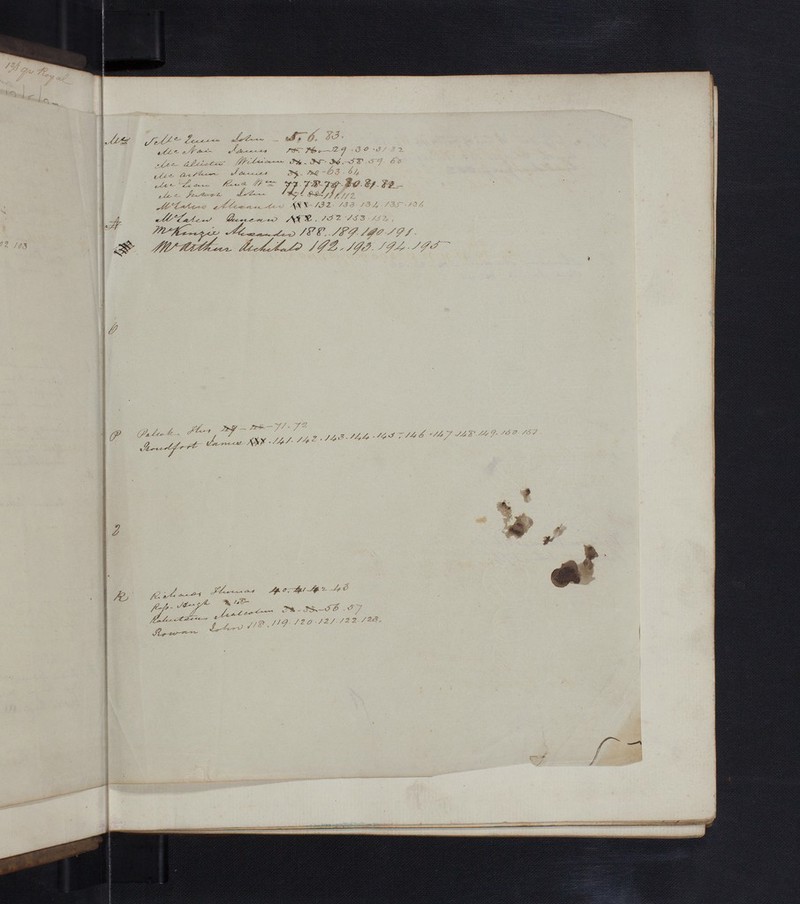 Mc
Mc Ewen John - 5. 6. 83.
Mc Nair James 29. 30. 31. 32
Mc Alister William 58. 59. 60
Mc Arthur James 63. 64
Mc Lean Revd Wm 77. 78. 79. 80. 81. 82
John 111. 112
McLaren Alexander 132. 133. 134. 135. 136
N
McLaren Duncan 152. 153. 154.
McKenzie Alexander 188. 189. 190. 191.
McArthur Archibald 192. 193. 194. 195
O
P
71. 72
Proudfoot James 141. 142. 143. 144. 145. 146. 147. 148. 149. 150. 151
Q
R
Thomas 40. 41. 42. 43
Ross. Hugh
Robertson Malcolm 56. 57
Rowan John 118. 119. 120. 121. 122. 123.